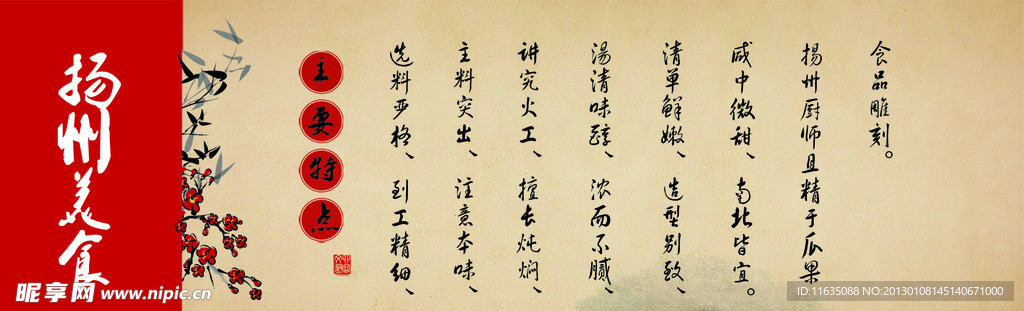 扬州美食
主要特点
选料严格、到工精细、
主料突出、注意本味、
讲究火工、擅长炖焖、
湯清味醇、浓而不腻、
清单鲜嫩、造型别致、
咸中微甜、南北皆宜。
揚州厨师且精于瓜果
食品雕刻。
昵享网 www.nipic.cn
ID:11635088 NO:20130108145140671000